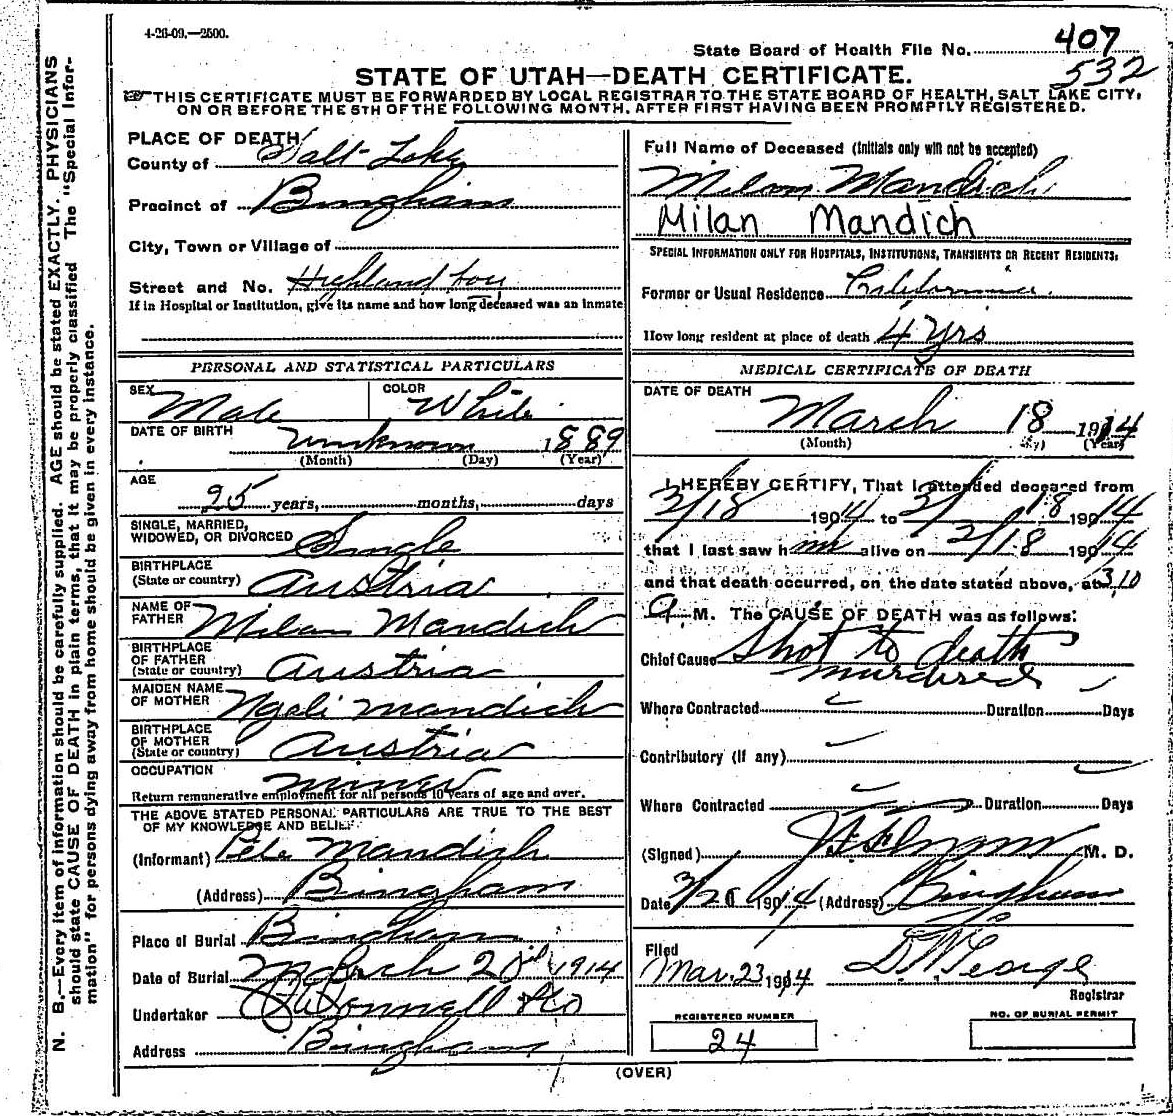 4-26-09.—2500.
State Board of Health File No. 407
532
STATE OF UTAH—DEATH CERTIFICATE.
THIS CERTIFICATE MUST BE FORWARDED BY LOCAL REGISTRAR TO THE STATE BOARD OF HEALTH, SALT LAKE CITY,
ON OR BEFORE THE 5TH OF THE FOLLOWING MONTH, AFTER FIRST HAVING BEEN PROMPTLY REGISTERED.
N. B.—Every item of information should be carefully supplied. AGE should be stated EXACTLY. PHYSICIANS
should state CAUSE OF DEATH in plain terms, that it may be properly classified The "Special Infor-
mation" for persons dying away from home should be given in every instance.
PLACE OF DEATH
County of Salt Lake
Precinct of Bingham
City, Town or Village of
Street and No. Highland
If in Hospital or Institution, give its name and how long deceased was an inmate
PERSONAL AND STATISTICAL PARTICULARS
SEX Male COLOR White
DATE OF BIRTH unknown 1889
(Month) (Day) (Year)
AGE
25 years, months, days
SINGLE, MARRIED,
WIDOWED, OR DIVORCED Single
BIRTHPLACE
(State or country) Austria
NAME OF
FATHER Milan Mandich
BIRTHPLACE
OF FATHER
(State or country) Austria
MAIDEN NAME
OF MOTHER Ngeli Mandich
BIRTHPLACE
OF MOTHER
(State or country) Austria
OCCUPATION Miner
Return remunerative employment for all persons 10 years of age and over.
THE ABOVE STATED PERSONAL PARTICULARS ARE TRUE TO THE BEST
OF MY KNOWLEDGE AND BELIEF.
(Informant) Pete Mandich
(Address) Bingham
Place of Burial Bingham
Date of Burial March 20 1914
Undertaker O'Donnell & Co
Address Bingham
Full Name of Deceased (Initials only will not be accepted)
Milan Mandich
Milan Mandich
SPECIAL INFORMATION ONLY FOR HOSPITALS, INSTITUTIONS, TRANSIENTS OR RECENT RESIDENTS.
Former or Usual Residence California
How long resident at place of death 4 yrs
MEDICAL CERTIFICATE OF DEATH
DATE OF DEATH
March 18 1914
(Month) (Year)
I HEREBY CERTIFY, That I attended deceased from
3/18 1914 to 3/18 1914
that I last saw him alive on 3/18 1914
and that death occurred, on the date stated above, at 3.10
A M. The CAUSE OF DEATH was as follows:
Chief Cause Shot to death
murdered
Where Contracted Duration Days
Contributory (if any)
Where Contracted Duration Days
(Signed) M. D.
Date 3/20 1914 (Address) Bingham
Filed
Mar. 23 1914 D. W. George
Registrar
REGISTERED NUMBER
24
NO. OF BURIAL PERMIT
(OVER)